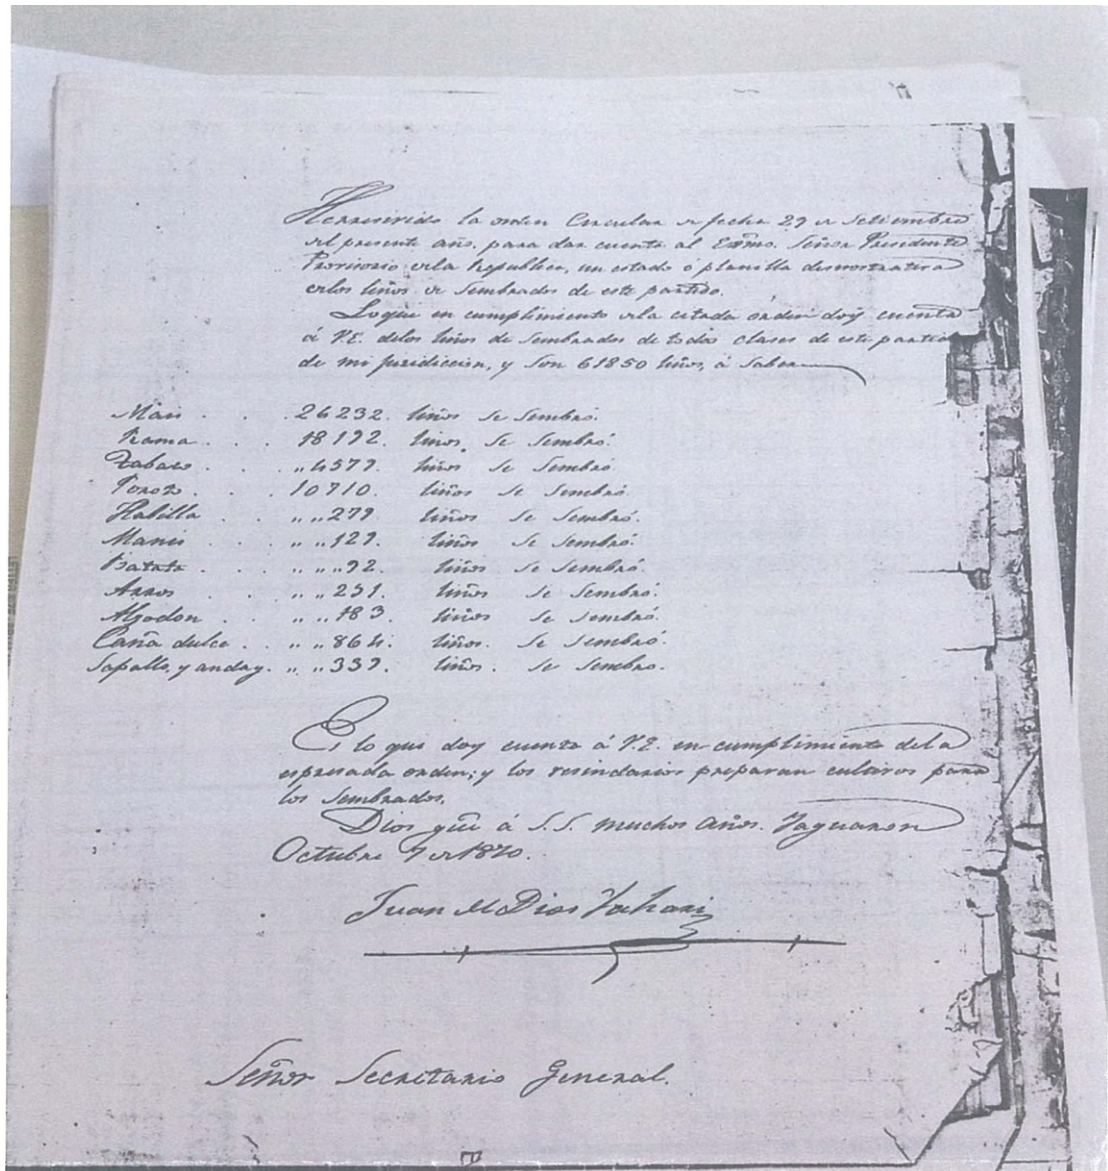 Herresivido la orden Circular de fecha 29 de Setiembre
del presente año, para dar cuenta al Exmo. Señor Presidente
Provisorio dela Republica, un estado ó planilla demostrativa
delos liños de Sembrados de este partido.
Loque en cumplimiento dela citada orden doy cuenta
á V.E. delos liños de Sembrados de todas clases de este partido
de mi juridiccion, y Son 61850 liños, á Saber
Mais . . 26232. liños Se Sembró.
Rama . . . 18192. liños. Se Sembró.
Tabaco . . „ 4579. liños Se Sembró.
Poroto . . . 10710. liños Se Sembró.
Habilla . . „ „ 279. liños Se Sembró.
Mani . . „ „ 129. liños Se Sembró.
Batata . . „ „ „ 92. liños Se Sembró.
Arros . . „ „ 251. liños Se Sembró.
Algodon . . „ „ 183. liños Se Sembró.
Caña dulce . „ „ 864. liños. Se Sembró.
Sapallo, y anday. „ „ 339. liños. Se Sembró.
Es lo que doy cuenta á V.E. en cumplimiento dela
espresada orden; y los vesindarios preparan cultivos para
los Sembrados.
Dios güe á S.S. muchos años. Yaguaron
Octubre 7 de 1870.
Juan de Dios
Señor Secretario General.